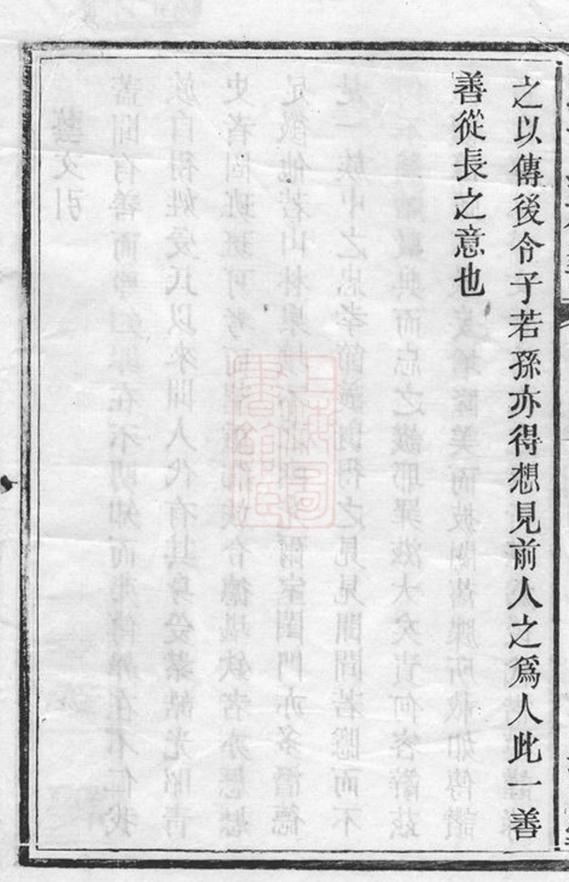 之以傳後令子若孫亦得想見前人之爲人此一善
善從長之意也